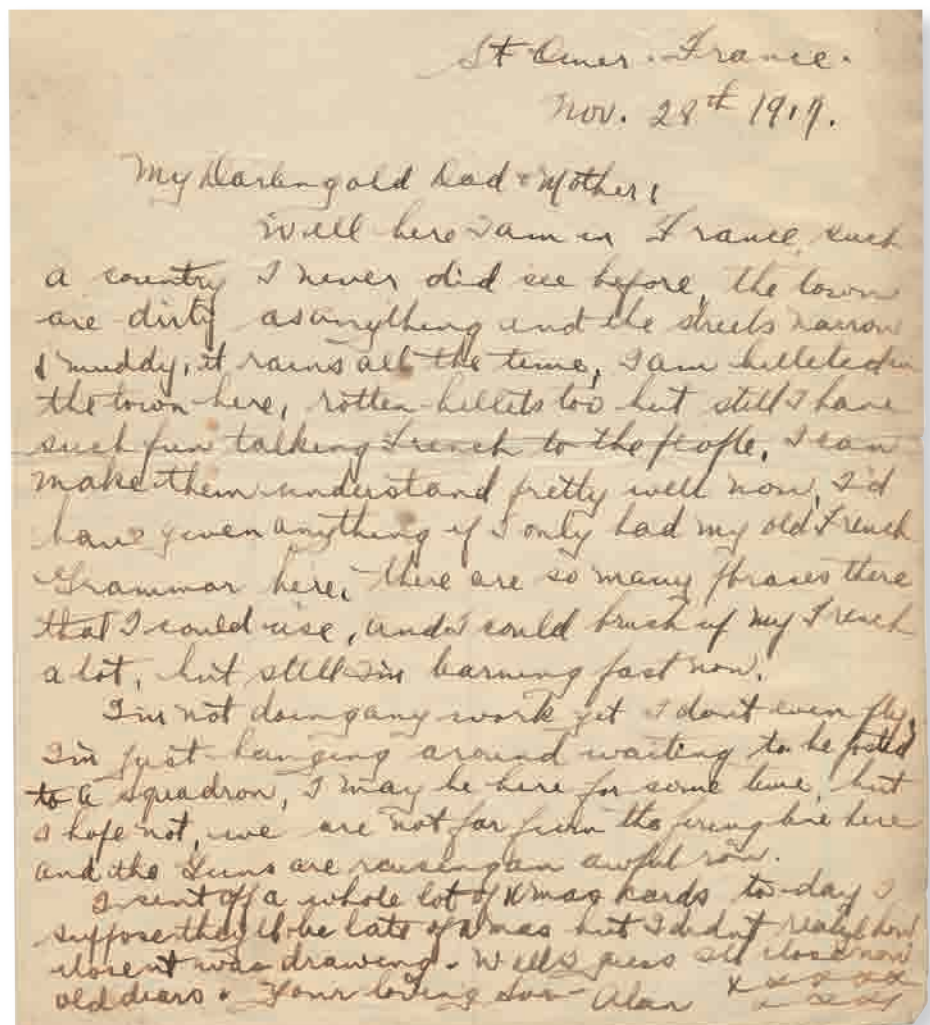 St Omer. France.
Nov. 28th 1917.
My Darling old Dad & Mother;
Well here I am in France, such
a country I never did see before, the town
are dirty as anything and the streets narrow
& muddy, it rains all the time, I am billeted in
the town here, rotten billets too but still I have
such fun talking French to the people, I can
make them understand pretty well now, I'd
have given anything if I only had my old French
Grammar here, there are so many phrases there
that I could use, and I could brush up my French
a lot, but still I'm learning fast now.
I'm not doing any work yet I dont even fly,
I'm just hanging around waiting to be posted
to a squadron, I may be here for some time, but
I hope not, we are not far from the firing line here
and the Guns are raising an awful row.
I sent off a whole lot of Xmas cards to-day I
suppose they'll be late of Xmas but I didn't realize how
close it was drawing. Well I guess I'll close now
old dears. Your loving Son Alan x x x x x
x x x x